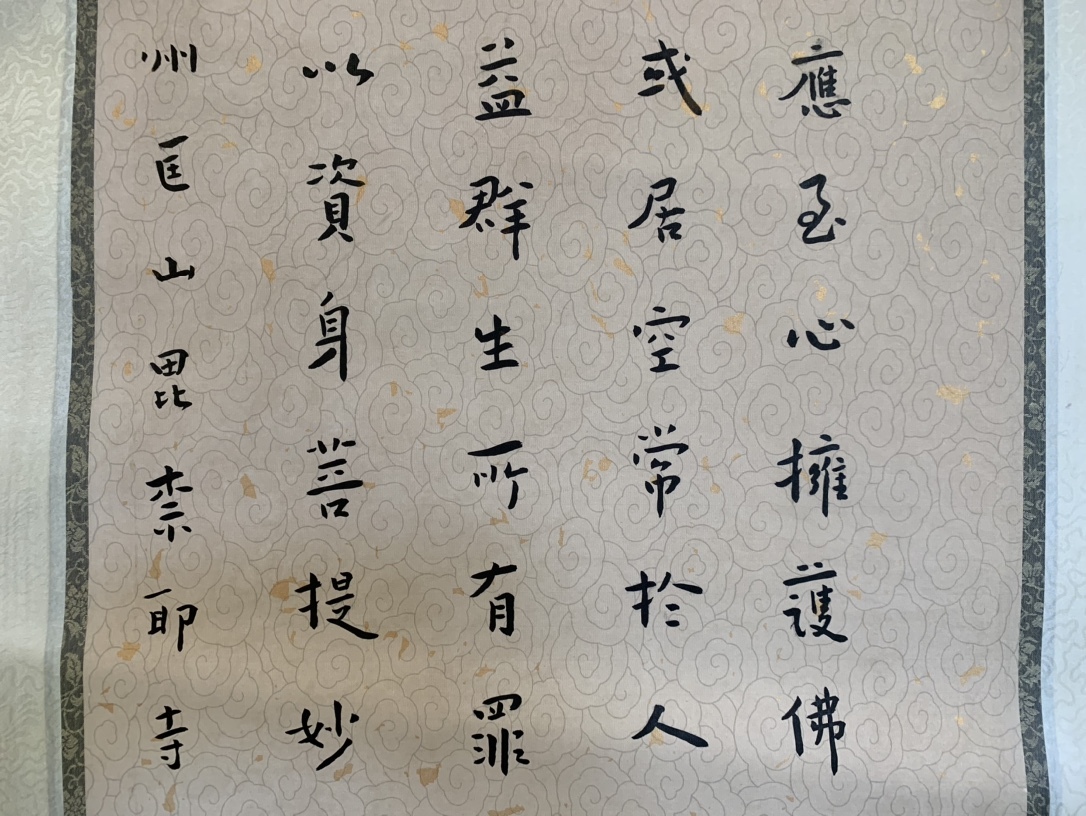 應至心擁護佛
或居空常於人
益群生所有罪
以資身菩提妙
州匡山毘柰耶寺